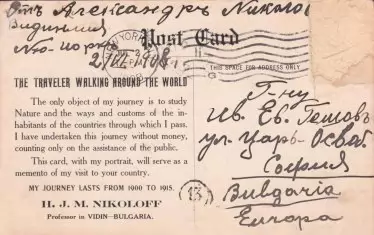 Отъ Александръ Николо
Видински
Ню-Iоркъ
2.VII.1908
NEW YORK
Post Card
THIS SPACE FOR ADDRESS ONLY
THE TRAVELER WALKING AROUND THE WORLD
The only object of my journey is to study
Nature and the ways and customs of the in-
habitants of the countries through which I pass.
I have undertaken this journey without money,
counting only on the assistance of the public.
This card, with my portrait, will serve as a
memento of my visit to your country.
MY JOURNEY LASTS FROM 1900 TO 1915.
H. J. M. NIKOLOFF
Professor in VIDIN-BULGARIA.
Г-ну
Ив. Ев. Гешовъ
ул. Царь-Освоб.
София
Bulgaria
Europa